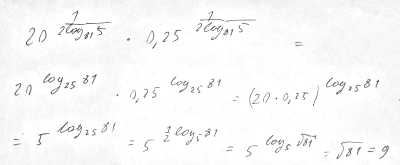 20^{\frac{1}{2\log_{81}5}} · 0,25^{\frac{1}{2\log_{81}5}} =
20^{\log_{25}81} · 0,25^{\log_{25}81} = (20·0,25)^{\log_{25}81}
= 5^{\log_{25}81} = 5^{\frac{1}{2}\log_{5}81} = 5^{\log_{5}\sqrt{81}} = \sqrt{81} = 9